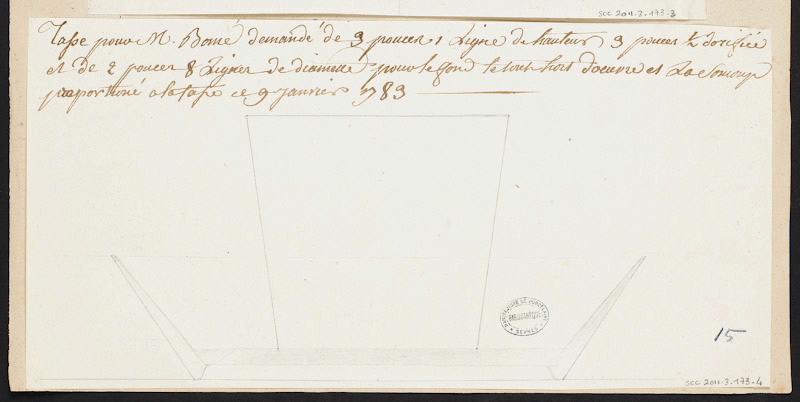 SCC 2011-3-173-3
Tasse pour M. Bomé demandé de 3 pouces 1 Ligne de hauteur 3 pouces ½ d'orifice
et de 2 pouces 8 Lignes de diametre pour le fond le tout hors d'oeuvre et La Soucoupe
proportioné a la tasse ce 9 janvier 1783
MANUFACTURE DE PORCELAINE
BIBLIOTHEQUE
SEVRES
15
SCC 2011-3-173-4